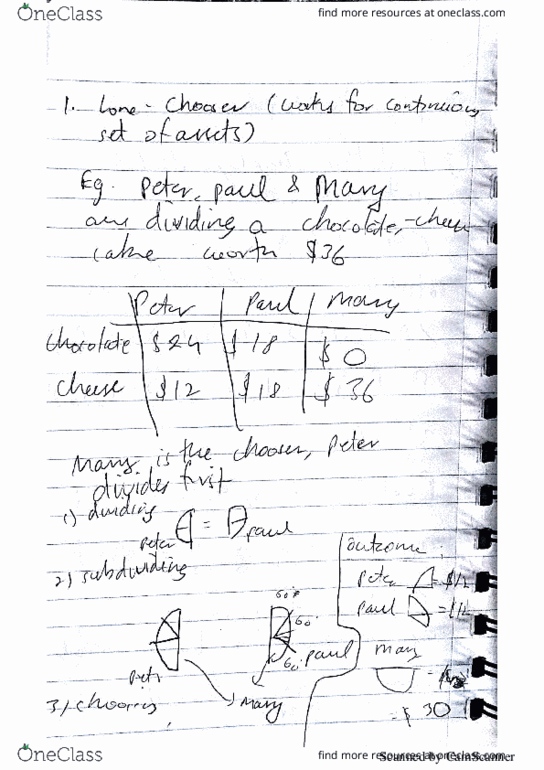 OneClass
find more resources at oneclass.com
1. Lone - Chooser (works for continuous
set of assets)
Eg. Peter, paul & Mary
are dividing a chocolate,-cheese
cake worth $36
Peter Paul Mary
chocolate $24 $18 $0
cheese $12 $18 $36
Mary is the chooser, Peter
divides first
1) dividing
Peter = Paul
2) subdividing
outcome:
Peter = $12
Paul =
60°
60°
60°
Paul
Mary
= $30
Peter
3) choosing
Mary
OneClass
find more resources at oneclass.com
Scanned by CamScanner